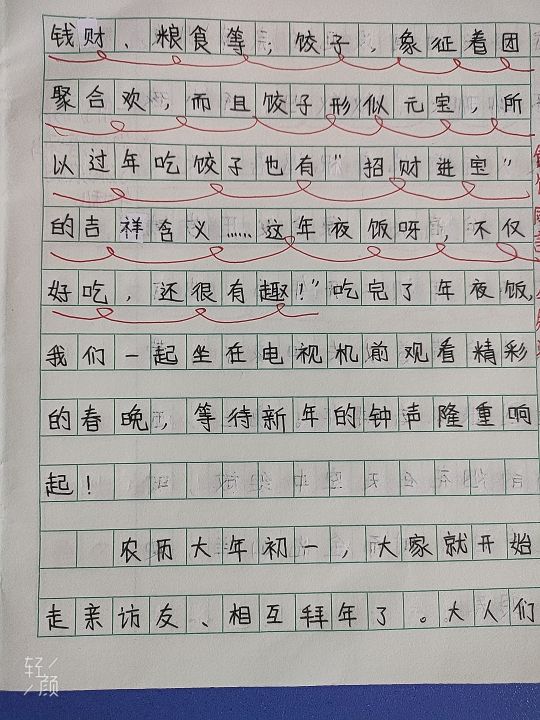 钱财、粮食等；饺子，象征着团
聚合欢，而且饺子形似元宝，所
以过年吃饺子也有"招财进宝"
的吉祥含义……这年夜饭呀，不仅
好吃，还很有趣！"吃完了年夜饭，
我们一起坐在电视机前观看精彩
的春晚，等待新年的钟声隆重响
起！
农历大年初一，大家就开始
走亲访友、相互拜年了。大人们
轻颜